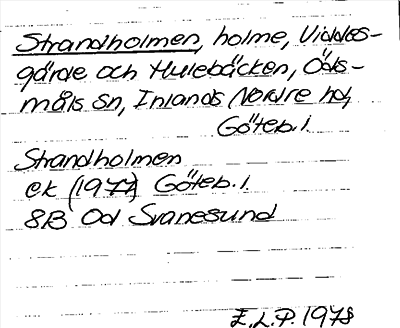 Strandholmen, holme, Viddes-
gärde och Hulebäcken, Öds-
måls sn, Inlands Nordre hd,
Göteb. l.
Strandholmen
ek (1977) Göteb. l.
8B Od Svanesund
E.L.P. 1978